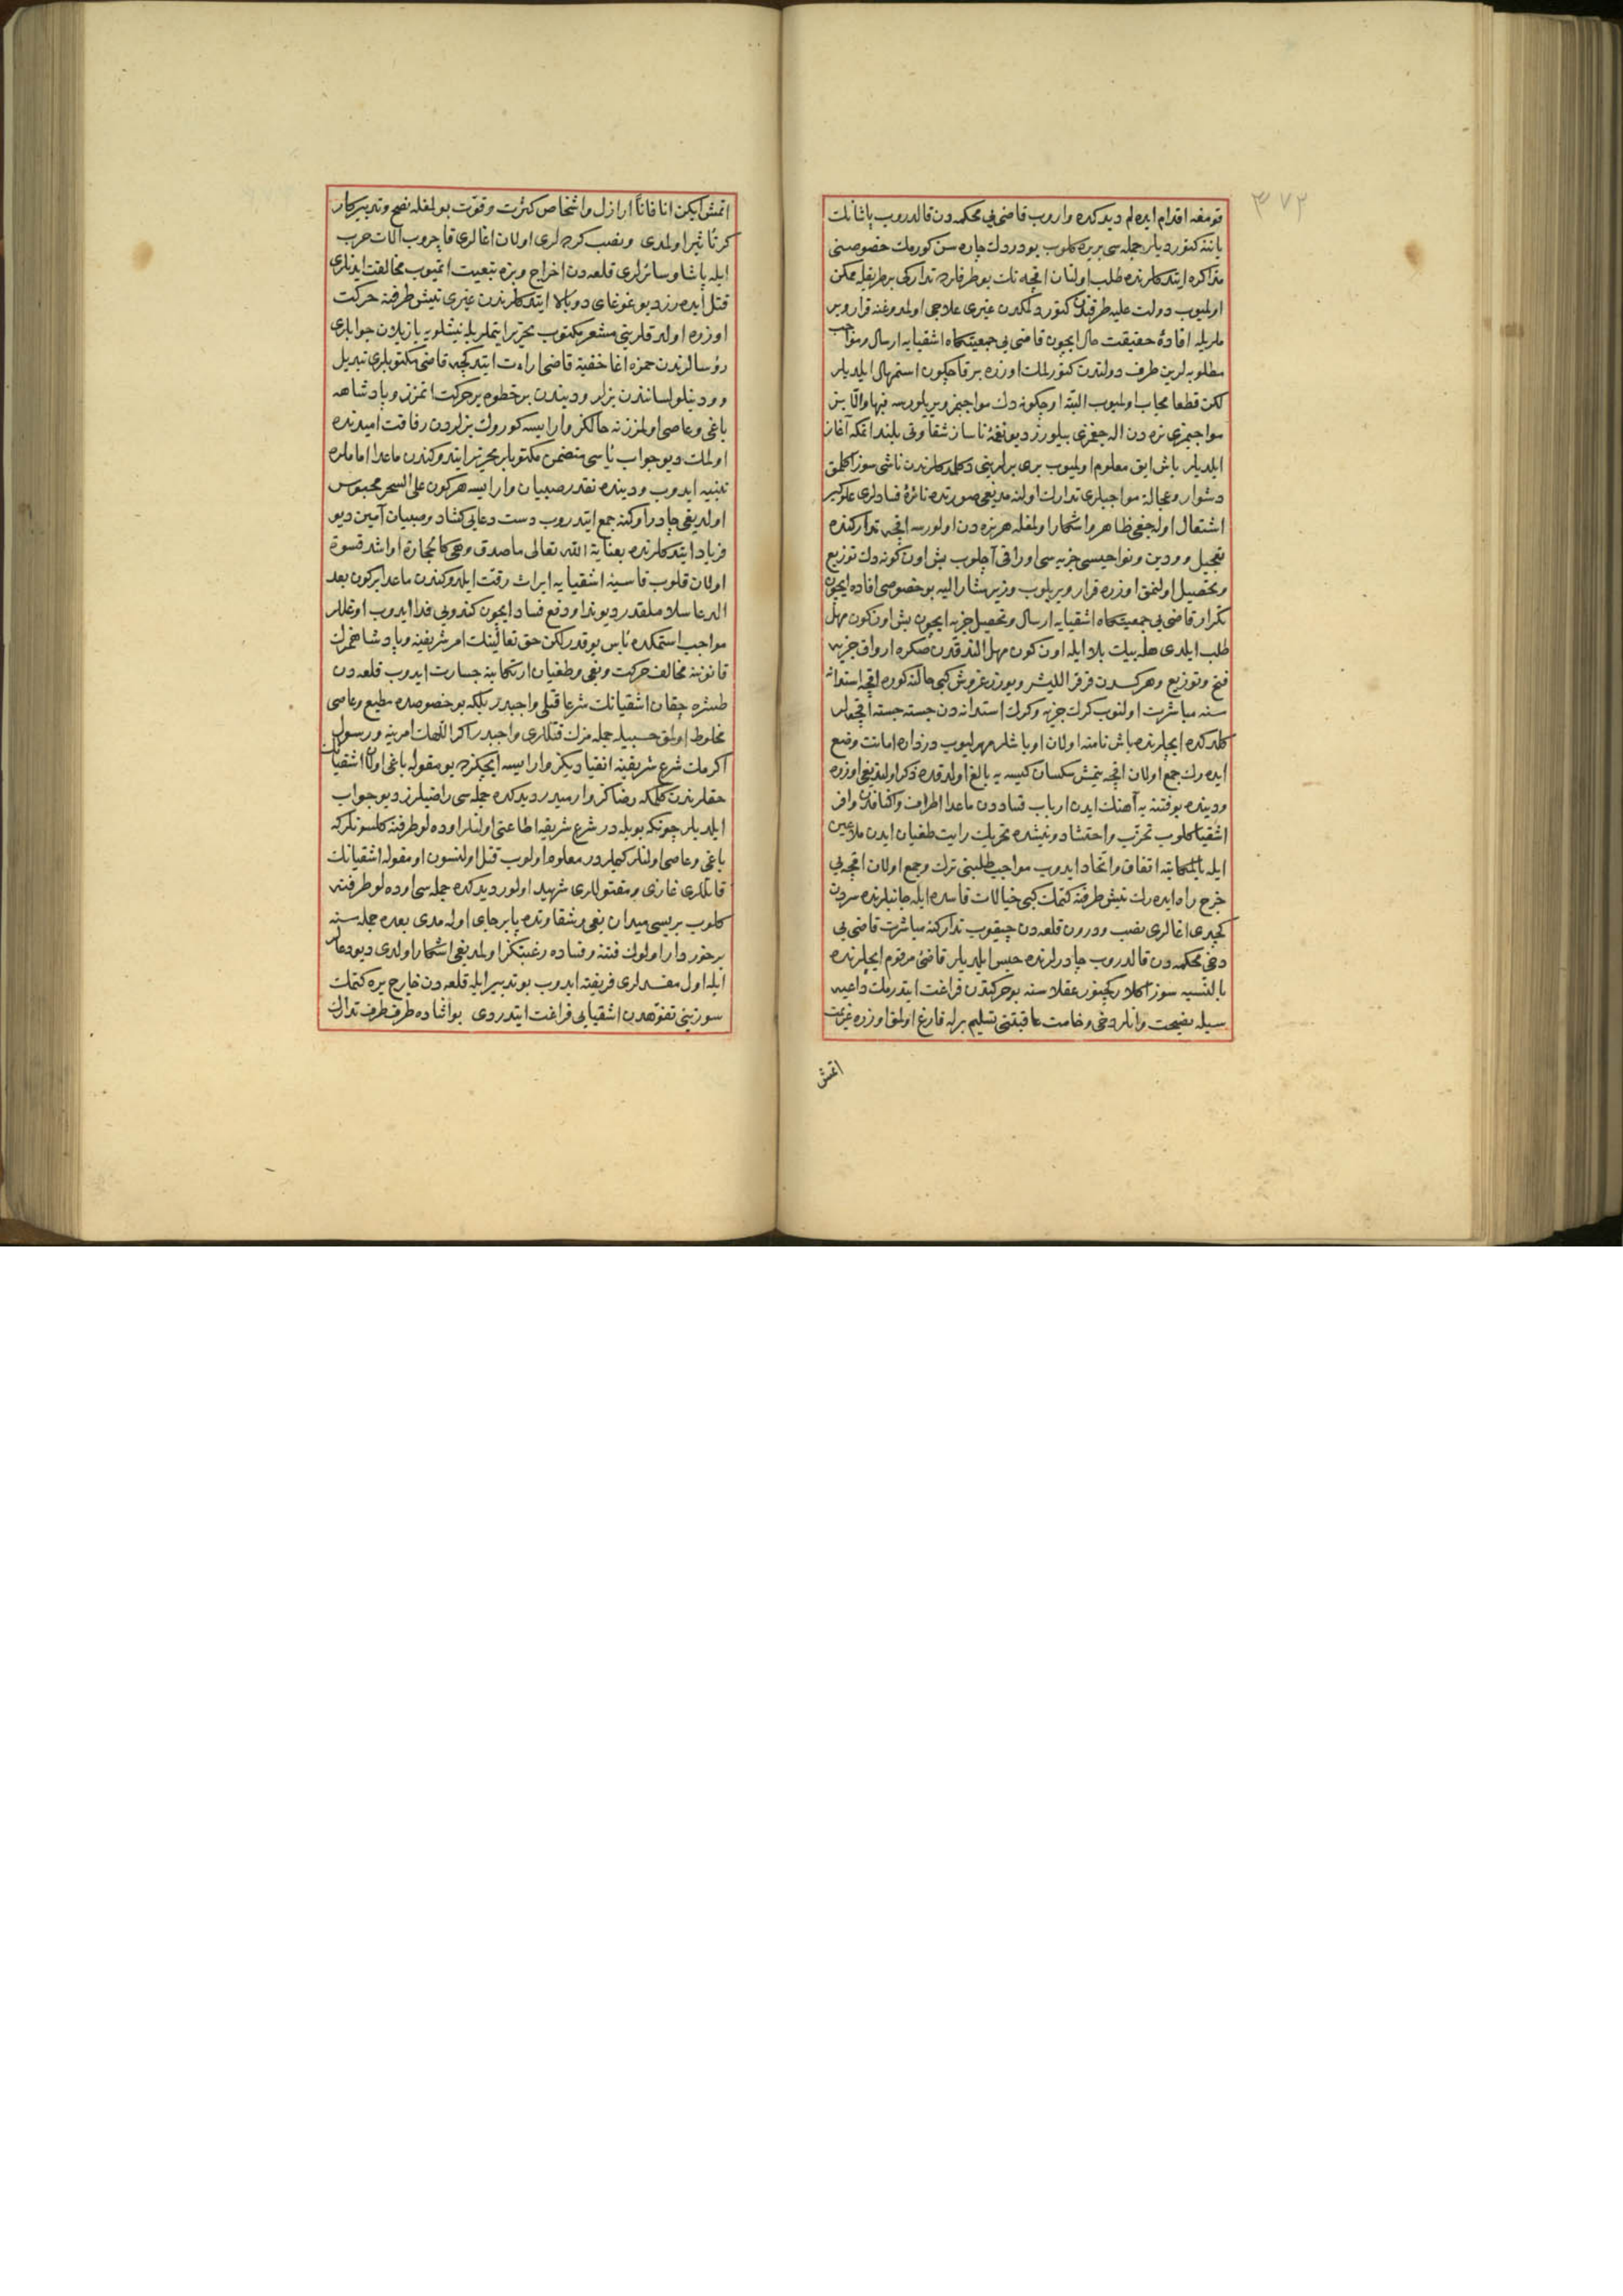 ٣٧٣
قومغه اقدام ايده لم ديدكده واروب قاضى يى محكمه دن قالدروب پاشانك
ياننه كتورديلر جمله سى بر يره كلوب بو دردك چاره سن كورمك خصوصنى
مذاكره ايتدكلرنده طلب اولنان اقچه نك بو طرفلرده تداركى بر طريقله ممكن
اولميوب دولت عليه طرفندن كتورلمكدن غيرى علاجى اولمدوغنه قرار وير
ملريله افادهٔ حقيقت حال ايچون قاضى يى جمعيتكاه اشقيايه ارسال و مواجب
مطلوبه لرين طرف دولتدن كتورلمك اوزره بر قاچ كون استمهال ايلديلر
لكن قطعا مجاب اولميوب البته اوچ كونه دك مواجبمز ويريلورسه فبها والا بز
مواجبمزى نره دن اله جغمزى بيلورز ديو نغمهٔ ناساز شقاوتى بلند اتمكه آغاز
ايلديلر باش ايق معلوم اولميوب برى برلرينى دكلمدكلرندن ناشى سوز اكلمق
دشوار و عجالة مواجبلرى تدارك اولنه مديغى صورتده نائرهٔ فسادلرى علوكير
اشتعال اوله جغى ظاهر و اشكار اولمغله هر نره دن اولورسه اقچه تداركنده
تعجيل و ودين و نواحيسى جزيه سى اوراقى آچلوب بش اون كونه دك توزيع
وتحصيل اولنمق اوزره قرار ويريلوب وزير مشار اليه بو خصوصى افاده ايچون
تكرار قاضى يى جمعيتكاه اشقيايه ارسال و تحصيل جزيه ايچون بش اون كون مهل
طلب ايلدى هله بيك بلا ايله اون كون مهل الندقدن صكره اوراق جزيه
فتح و توزيع و هر كسدن قرقر الليشر و يوزر غروش كبى حالنه كوره اقچه استدانه
سنه مباشرت اولنوب كرك جزيه و كرك استدانه دن جسته جسته اقچه لر
كلدكده ايچلرنده باش نامنه اولان اوباشلر مهرليوب دزداره امانت وضع
ايده رك جمع اولان اقچه يتمش سكسان كيسه يه بالغ اولدقده ذكر اولنديغى اوزره
ودينده بو فتنه يه آهنك ايدن ارباب فساددن ماعدا اطراف و اكنافدن وافر
اشقيا كلوب تحزب و احتشاد و نيشده تحريك رايت طغيان ايدن ملاعين
ايله بالمكاتبه اتفاق و اتحاد ايدوب مواجب طلبنى ترك و جمع اولان اقچه يى
خرج راه ايده رك نيش طرفنه كتمك كبى خيالات فاسده ايله جانبلرنده سردن
كچدى اغالرى نصب و درون قلعه دن چيقوب تداركنه مباشرت قاضى يى
دخى محكمه دن قالدروب چادرلرنده حبس ايلديلر قاضىٔ مرقوم ايچلرنده
بالنسبه سوز اكلار كچينور عقلاسنه بو حركتدن فراغت ايتدرمك داعيه
سيله نصيحت و انلر دخى وخامت عاقبتنى تسليم برله فارغ اولمق اوزره عزيمت
اتمش
اتمش ايكن انا فانا ارازل و اشخاص كثرت و قوت بولمغله نصح و تدبير كار
كر تأثير اولمدى و نصب كرده لرى اولان اغالرى قاچروب الات حرب
ايله پاشا و سائرلرى قلعه دن اخراج و بزه تبعيت اتميوب مخالفت ايدنلرى
قتل ايده رز ديو غوغاى دوبالا ايتدكلرندن غيرى نيش طرفنه حركت
اوزره اولدقلرينى مشعر مكتوب تحرير ايتملريله نيشلويه يازيلان جوابلرى
رؤسالرندن حمزه اغا خفية قاضى ارائت ايتدكچه قاضى مكتوبلرى تبديل
و ودينلو لسانندن بزلر وديندن بر خطوه ير حركت اتمزز و پادشاهه
باغى و عاصى اولمزز نه حالكز وار ايسه كورك بزلردن رفاقت اميدنده
اولمك ديو جواب يأسى متضمن مكتوبلر تحرير ايتدوكندن ماعدا اماملره
تنبيه ايدوب ودينده نقدر صبيان وار ايسه هر كون على السحر محبوس
اولديغى چادر اوكنه جمع ايتدروب دست دعايى كشاد و صبيان آمين ديو
فرياد ايتدكلرنده بعناية الله تعالى ماصدق وهى كالحجارة او اشد قسوة
اولان قلوب قاسيهٔ اشقيايه ايراث رقت ايلدوكندن ماعدا بر كون بعد
الدعا سلاملقدر ديو ندا و دفع فساد ايچون كندويى فدا ايدوب اوغللر
مواجب استمكده بأس يوقدر لكن حق تعالينك امر شريفنه و پادشاهمزك
قانوننه مخالف حركت و بغى و طغيان ارتكابنه جسارت ايدوب قلعه دن
طشره چقان اشقيانك شرعا قتلى واجبدر بلكه بو خصوصده مطيع و عاصى
مخلوط اولمق حسبيله جمله مزك قتللرى واجبدر اكر اللهك امرينه و رسول
اكرمك شرع شريفينه انقياديكز وار ايسه ايچكزده بو مقوله باغى اولان اشقيانك
حقلرندن كلمكه رضاكز وارميدر ديدكده جمله سى راضيلرز ديو جواب
ايلديلر چونكه بويله در شرع شريفه اطاعتى اولنلر اوده لو طرفنه كلسونلر كه
باغى و عاصى اولنلر كيملردر معلوم اولوب قتل اولنسون او مقوله اشقيانك
قاتللرى غازى و مقتوللرى شهيد اولور ديدكده جمله سى اوده لو طرفنه
كلوب بريسى ميدان بغى و شقاوتده پابرجاى اوله مدى بعده جمله سنه
برخوردار اولوك فتنه و فساده رغبتكز اولمديغى اشكار اولدى ديو دعالر
ايله اول مفسدلرى فريفته ايدوب بو تدبير ايله قلعه دن خارج يره كتمك
سوزينى تفوهدن اشقيايى فراغت ايتدردى بو اثناده طرف طرف تدارك